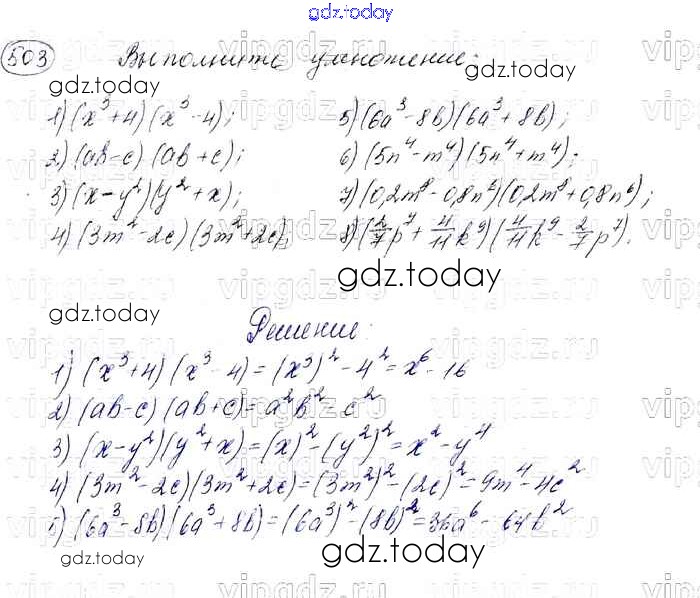 gdz.today
503 Выполните умножение:
gdz.today gdz.today
1) (x³+4)(x³-4); 5) (6a³-8b)(6a³+8b);
2) (ab-c)(ab+c); 6) (5n⁴-m⁴)(5n⁴+m⁴);
3) (x-y²)(y²+x); 7) (0,2m⁸-0,8n⁶)(0,2m⁸+0,8n⁶);
4) (3m²-2c)(3m²+2c); 8) (2/7p⁷+4/11k⁹)(4/11k⁹-2/7p⁷).
gdz.today
gdz.today
Решение:
1) (x³+4)(x³-4)=(x³)²-4²=x⁶-16
2) (ab-c)(ab+c)=a²b²-c²
3) (x-y²)(y²+x)=(x)²-(y²)²=x²-y⁴
4) (3m²-2c)(3m²+2c)=(3m²)²-(2c)²=9m⁴-4c²
5) (6a³-8b)(6a³+8b)=(6a³)²-(8b)²=36a⁶-64b²
gdz.today gdz.today